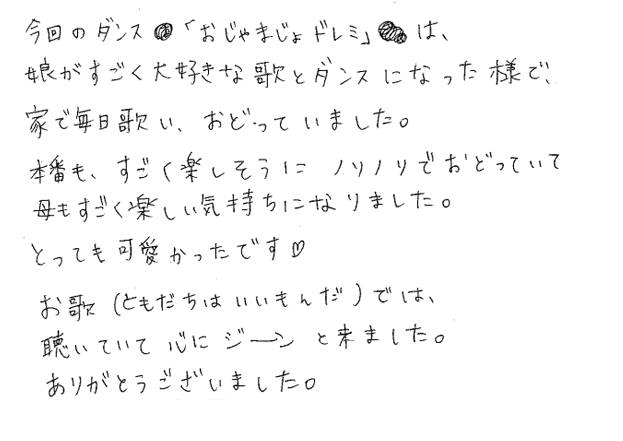 今回のダンス「おじゃまじょドレミ」は、
娘がすごく大好きな歌とダンスになった様で、
家で毎日歌い、おどっていました。
本番も、すごく楽しそうに ノリノリでおどっていて
母もすごく楽しい気持ちになりました。
とっても可愛かったです♡
お歌(ともだちはいいもんだ)では、
聴いていて心にジーンと来ました。
ありがとうございました。